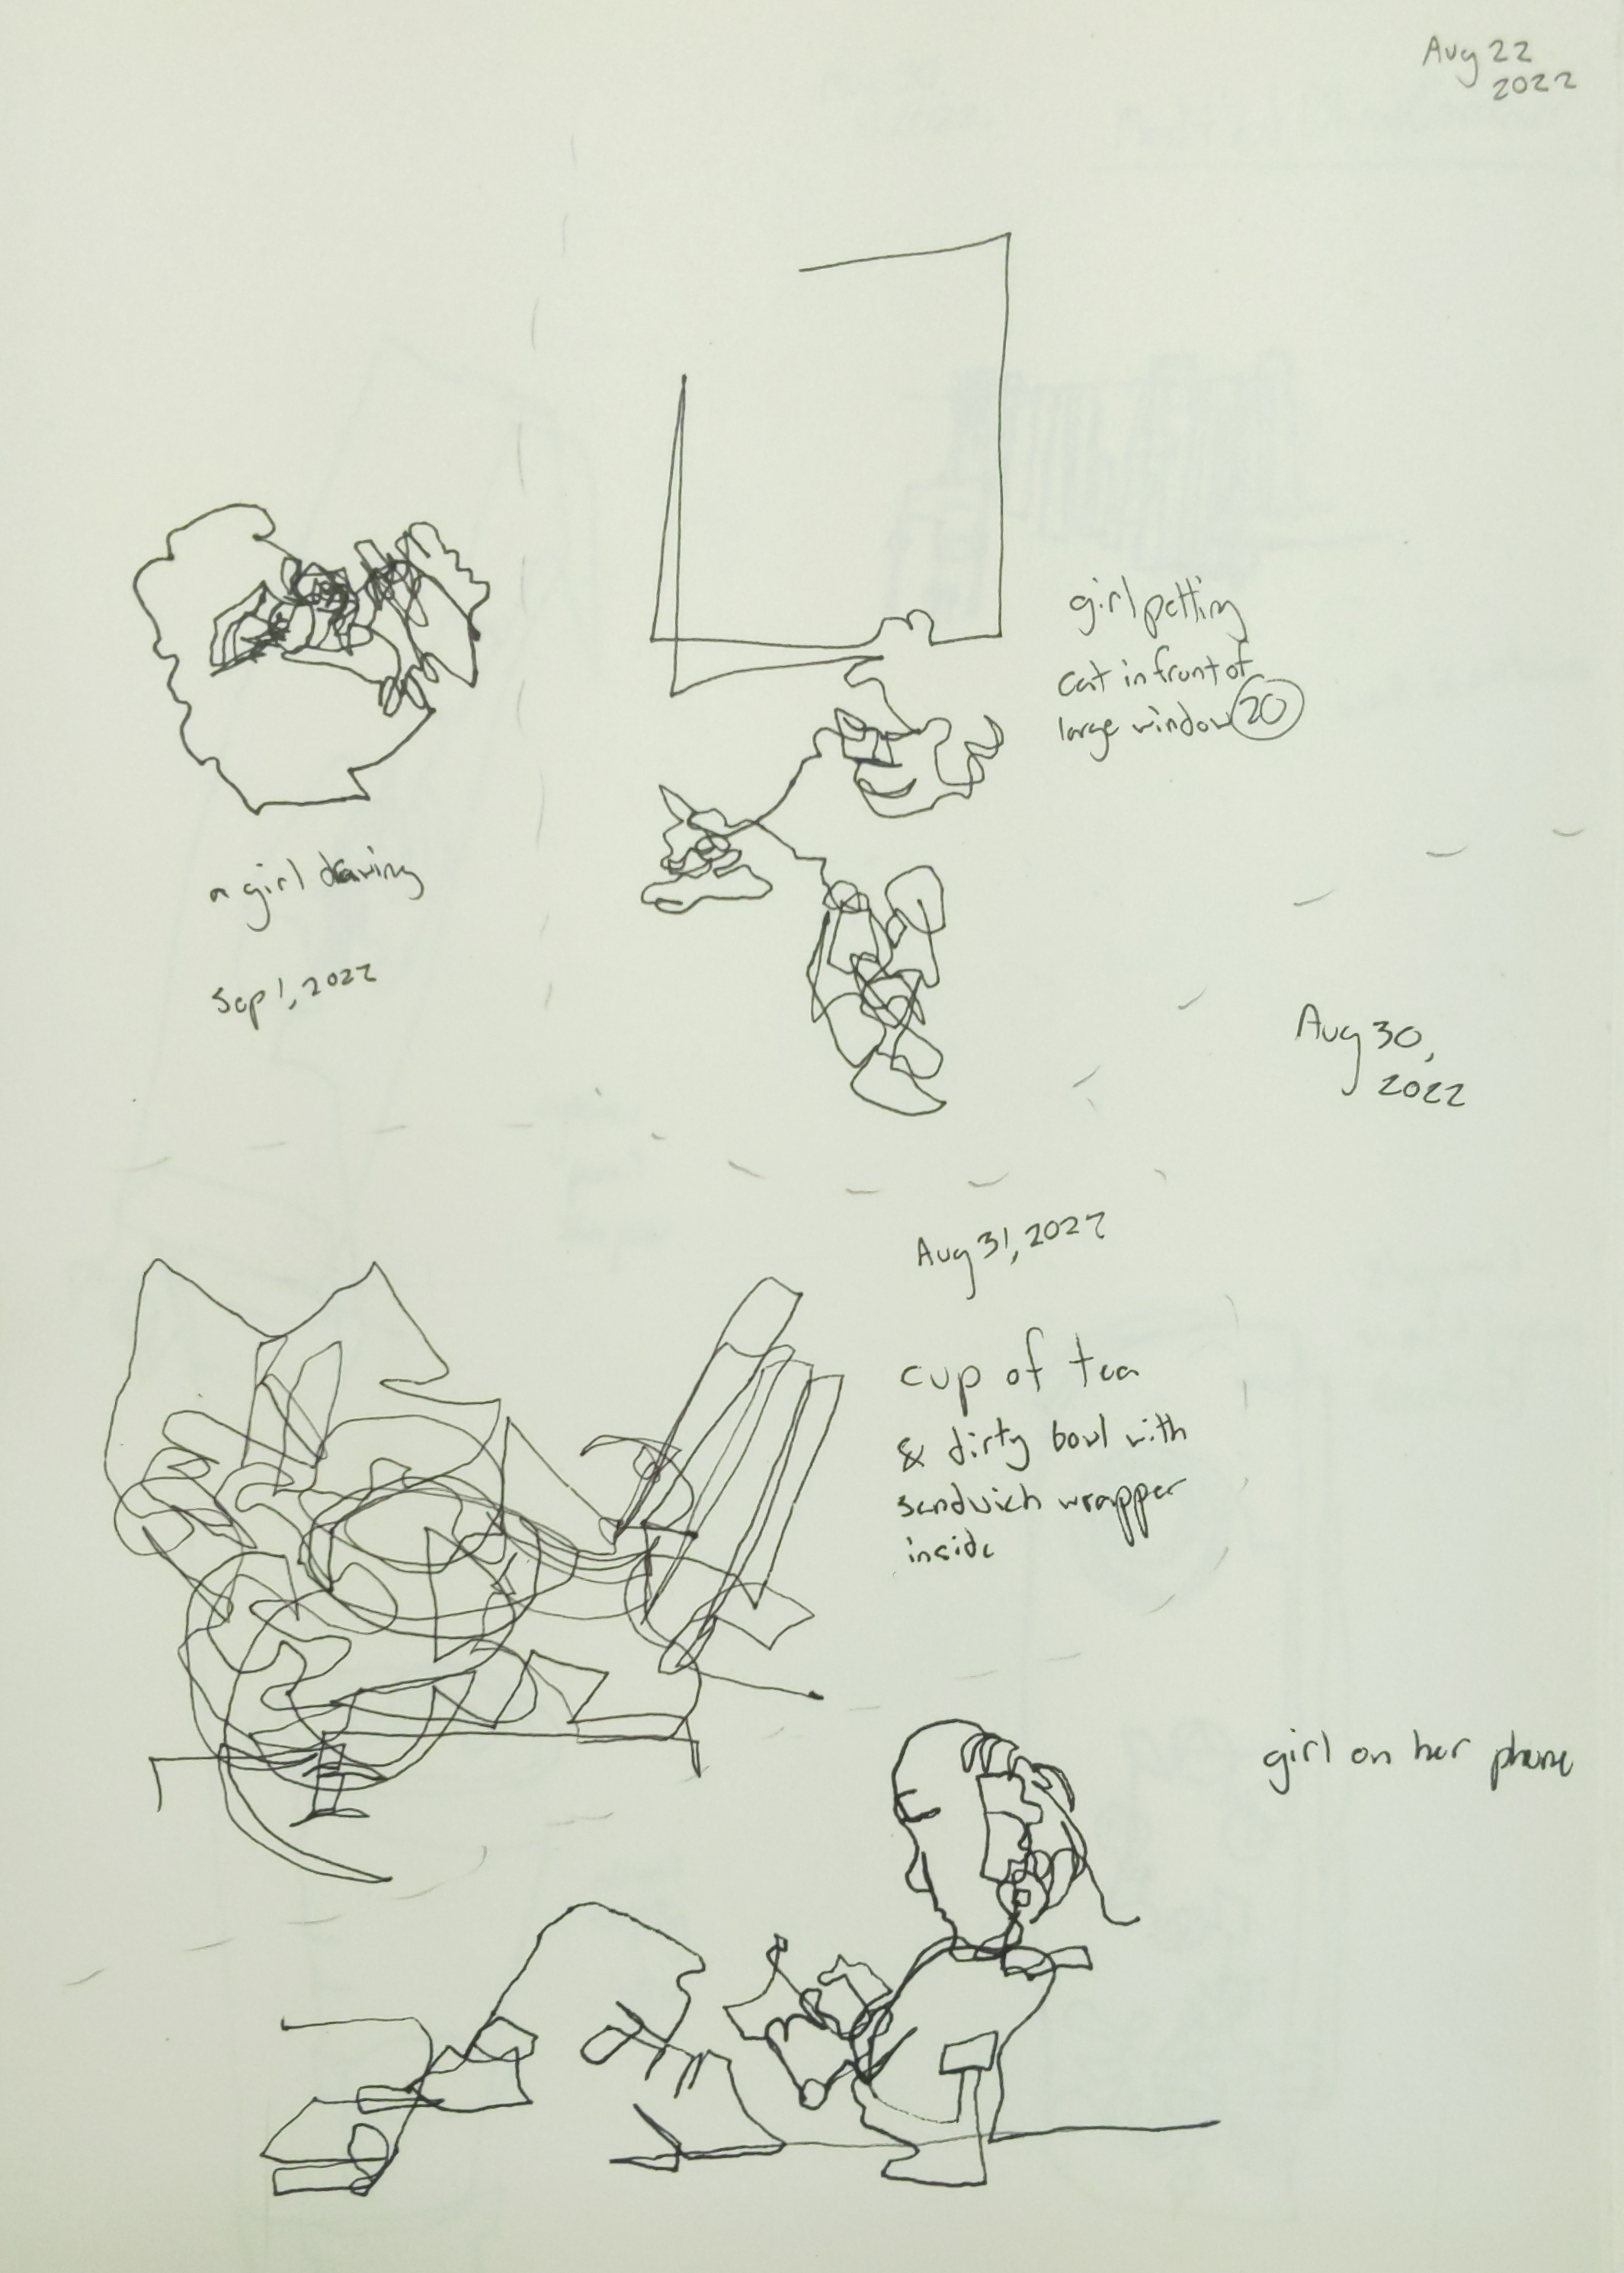 Aug 22
2022
girl petting
cat in front of
large window 20
a girl drawing
Sep 1, 2022
Aug 30,
2022
Aug 31, 2022
cup of tea
& dirty bowl with
sandwich wrapper
inside
girl on her phone